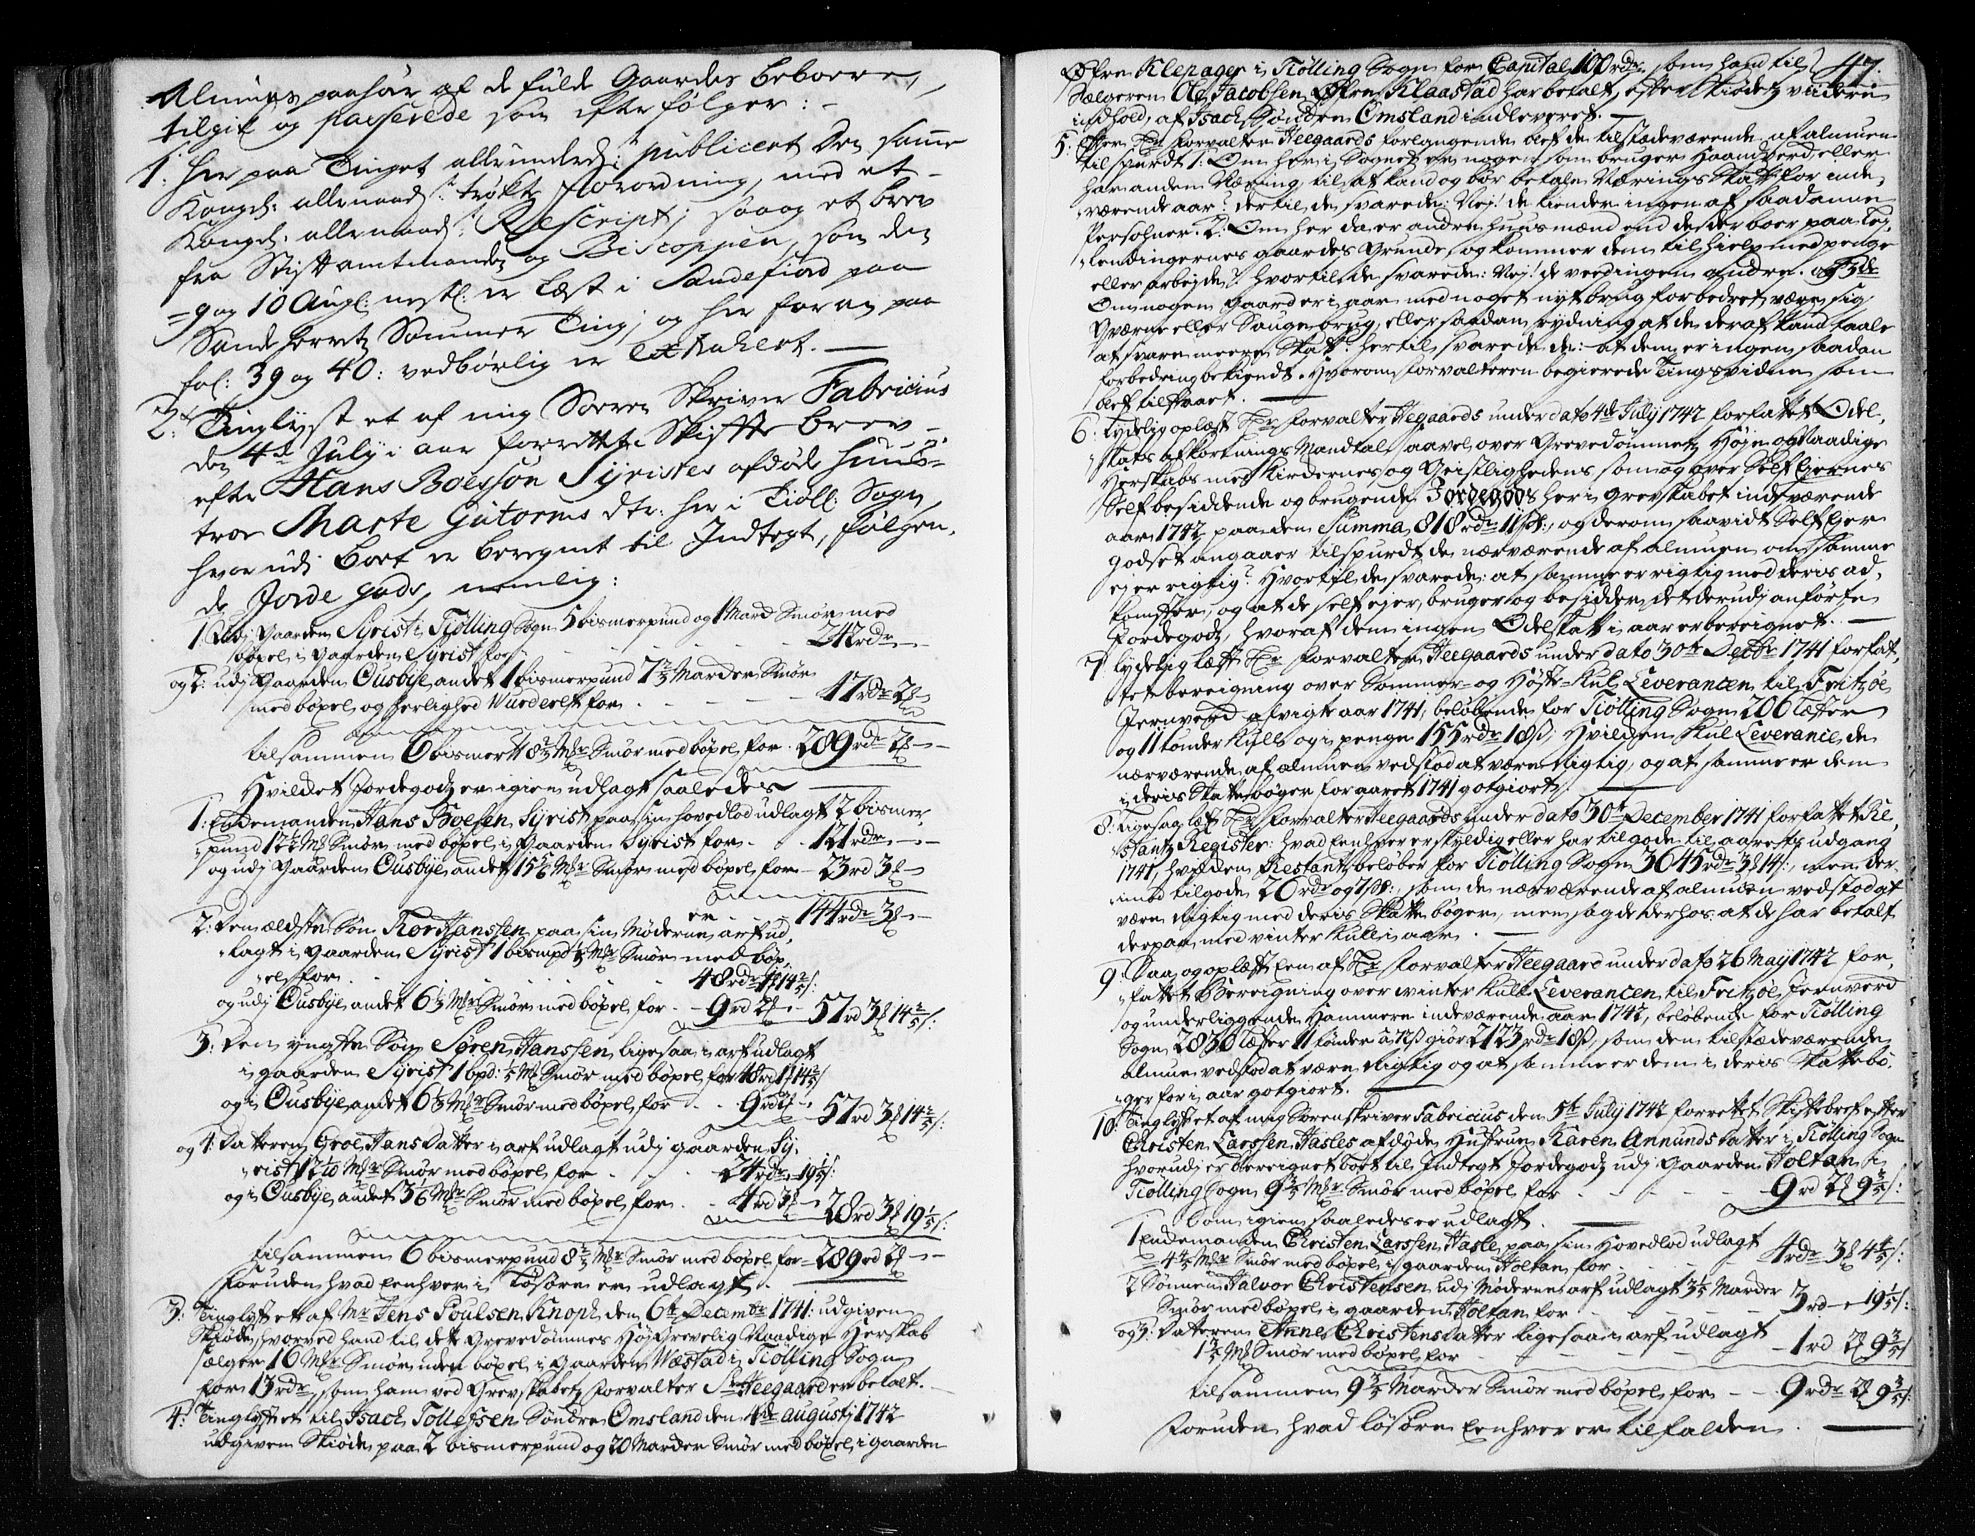 Almues paahør af de fulde Gaardes beboere,
tilgik og passerede som efter følger: -
1. her paa Tinget allerunderd: publicert den samme
Kongel: allernaad: trøkte Forordning, med et -
Kongel: allernaad: Rescript; saa og et brev
fra Stiftamtmanden og Biscoppen, som den
9 og 10 Augl: nestl: er læst i Sandefiord paa
Sande herretz Sommer Ting, og her foran paa
fol: 39 og 40: vedbørlig er extrahert. —
2. Tinglyst et af mig Soeren Skriver Fabricius
den 4de July i aar forrettet Skifte brev -
efter Hans Boesson Syristes afdøde huus-
troe Marte Gutorms dtr: her i Tiøll: Sogn,
hvorudj bort er beregnet til Indtegt, følgen,
de Jorde gods, nemlig:
1. Udj Gaarden Syrist i Tiølling Sogn 5 bismerpund og 1 Mark Smør med
bøxel i Gaarden Syrist for - - - 242 rdr - -
og 2: udj Gaarden Ousbye andet 1 bismerpund 7 2/3 Marker Smør
med bøxel og herlighed Vurderet for - - - 47 rdr 2 -
tilsammen 6 bismer # 8 2/3 Mkr Smør med bøxel for - 289 rdr 2 - -
Hvilket Jordegodz er igien udlagt saaledes
1. Enkemanden Hans Boesen Syrist paa sin hovedlod udlagt 2 bismer,
pund 12 1/2 Mk Smør med bøxel i Gaarden Syrist for - 121 rdr - -
og udj Gaarden Ousbye andet 15 5/6 Mkr Smør med bøxel for - 23 rd 3 -
er - 144 rdr 3 - -
2. Den ældste Søn Tor Hanssen paa sin Møderne arf ud,
lagt i Gaarden Syrist 1 bismpd 1/5 Mkr Smør med bøx,
el for - - - 48 rdr 1 14 2/5 s:
og udj Ousbye andet 6 1/3 Mkr Smør med bøxel for - 9 rd 2 - 57 rd 3 14 2/5 s:
3. Den yngste Søn Søren Hanssen ligesaa i arf udlagt
i gaarden Syrist 1 bpd: 1/5 Mk Smør med bøxel for 48 rd 1 14 2/5 s
og i Ousbye andet 6 1/3 Mkr Smør med bøxel for - - 9 rd 2 - 57 rd 3 14 2/5 s:
og 4. Datteren Groe Hans datter i arf udlagt udj gaarden Sy,
rist 12 1/10 Mkr Smør med bøxel for - - 24 rdr - 19 1/5 s:
og i Ousbye andet 3 1/6 Mkr Smør med bøxel for - - 4 rd 3 - 28 rd 3 19 1/5 s:
tilsammen 6 bismerpund 8 2/3 Mkr Smør med bøxel for - 289 rd 2 - -
Foruden hvad Eenhver i Løsøre er udlagt.
3. Tinglyst et af Mr Jens Poulsen Knoph den 6te Decembr 1741: udgiven
Skiøde, hvorved hand til dett Grevedømmes Høj Grevelig Naadige Herskab
sælger 16 Mkr Smør uden bøxel i Gaarden Wæstad i Tiølling Sogn
for 13 rdr, som ham ved Grevskabetz Forvalter Sr Heegaard er betalt. -
4. Tinglyst et til Isach Tollefsen Søndre Omsland den 4de augustj 1742
udgiven Skiøde paa 2 bismerpund og 20 Marker Smør med bøxel i gaarden
47.
Øfre Klepager i Tiølling Sogn for Capital 100 rdr. som hand til
Sælgeren Ole Jacobsen Øfre Klaastad har betalt, efter Skiødetz viidere
indhold, af Isach Søndre Omsland indleveret. —
5. Efter Sr Forvalter Heegaards forlangende blef de tilstædeværende af almuen
tilspurdt 1: Om her i Sognet er nogen som bruger Haandverk eller
har anden Næring, til at kand og bør betale Nærings Skatt for inde,
værende aar? dertil de svarede: Nej! de kiender ingen af saadanne
Persohner. 2: Om her da er andre huusmænd end de der boer paa Lej,
lendingernes gaardes Grunde, og kommer dem til hielp med penge
eller arbejde? hvortil de svarede: Nej! de veed ingen andre. og 3de
Om nogen Gaarder i aar med noget nyt brug forbedret være sig
Qværne eller Sauge brug, eller saadan rydning at de deraf kand taale
at svare meere Skatt: hertil svarede de: at dem er ingen saadan
forbedring bekiendt. Hvorom Forvalteren begierede Tingsvidne som
blef tilstaaet. —
6. Lydelig oplæst Sr Forvalter Heegaards under dato 4de July 1742 forfattet Odel,
Skats afkortnings Mandtal, saavel over Grevedømmetz Høje og Naadige
Herskabs med Kirkernes og Geistlighedens, som og over Selfejernes
Selfbesiddende og brugende Jordegods her i Grevskabet indeværende
aar 1742, paa den Summa 818 rdr 11 s:, og derom saavidt Selfejer
godset angaaer tilspurdt de nærværende af almuen om samme
ej er rigtig? Hvortil de svarede: at samme er rigtig med deris ad,
komster, og at de self ejer, bruger og besidder det derudj anførte
Jordegodz, hvoraf dem ingen Odelskat i aar er beregnet. —
7. Lydelig læst Sr Forvalter Heegaards under dato 30te Decbr 1741 forfat,
tet beregning over Sommer- og Høste-Kul Leverancen til Fritzøe
Jernverk afvigte aar 1741, beløbende for Tiølling Sogn 206 Læster
og 11 tønder Kull og i penge 155 rdr 18 s; Hvilken Kul Leverance de
nærværende af almuen vedstod at være Rigtig, og at samme er dem
i deris Skattebøger for aaret 1741 gotgiort. —
8. Ligesaa læst Sr Forvalter Heegaards under dato 30te December 1741 forfattet Re,
stantz Register: hvad Eenhver er skyldig eller har tilgode til aaretz udgang
1741, hvilken Restantz beløber for Tiølling Sogn 3645 rdr 3 14 s:, men der,
imod tilgode 26 rdr og 7 s:, som de nærværende af almuen vedstod at
være Rigtig med deris Skatte bøger, men sagde derhos at de har betalt
derpaa med vinter Kull i aar. —
9. Saa og oplæst Een af Sr Forvalter Heegaard under dato 26 May 1742 for,
fattet Beregning over vinter Kull Leverancen til Fritzøe Jernverk
og underliggende Hammere indeværende aar 1742, beløbende for Tiølling
Sogn 2830 Læster 11 tønder à 72 s giør 2123 rdr 18 s, som den tilstædeværende
almue vedstod at være Rigtig og at samme er dem i deris Skattebø,
ger for i aar gotgiort. —
10. Tinglyst et af mig Sorenskriver Fabricius den 5te July 1742 forrettet Skiftebref efter
Christen Larssen Hasles afdøde Hustrue Karen Amunds datter i Tiølling Sogn
hvorudj er beregnet bort til Indtegt Jordegodz udj Gaarden Holtan i
Tiølling Sogn 9 3/5 Mkr Smør med bøxel for - - - 9 rd 2 9 3/5 s:
Som igien saaledes er udlagt.
1 Enkemanden Christen Larssen Hasle paa sin Hovedlod udlagt
4 4/5 Mkr Smør med bøxel i gaarden Holtan for - - 4 rdr 3 4 4/5 s:
2 Sønnen Halvor Christensen udj Møderne arf udlagt 3 1/5 Marker
Smør med bøxel i gaarden Holtan for - - 3 rd - 19 1/5 s:
og 3. Datteren Anne Christens datter ligesaa i arf udlagt
1 3/5 Mk Smør med bøxel for - - 1 rd 2 9 3/5 s
tilsammen 9 3/5 Marker Smør med bøxel for - - 9 rdr 2 9 3/5 s:
Foruden hvad løsøre Eenhver er tilfalden. —